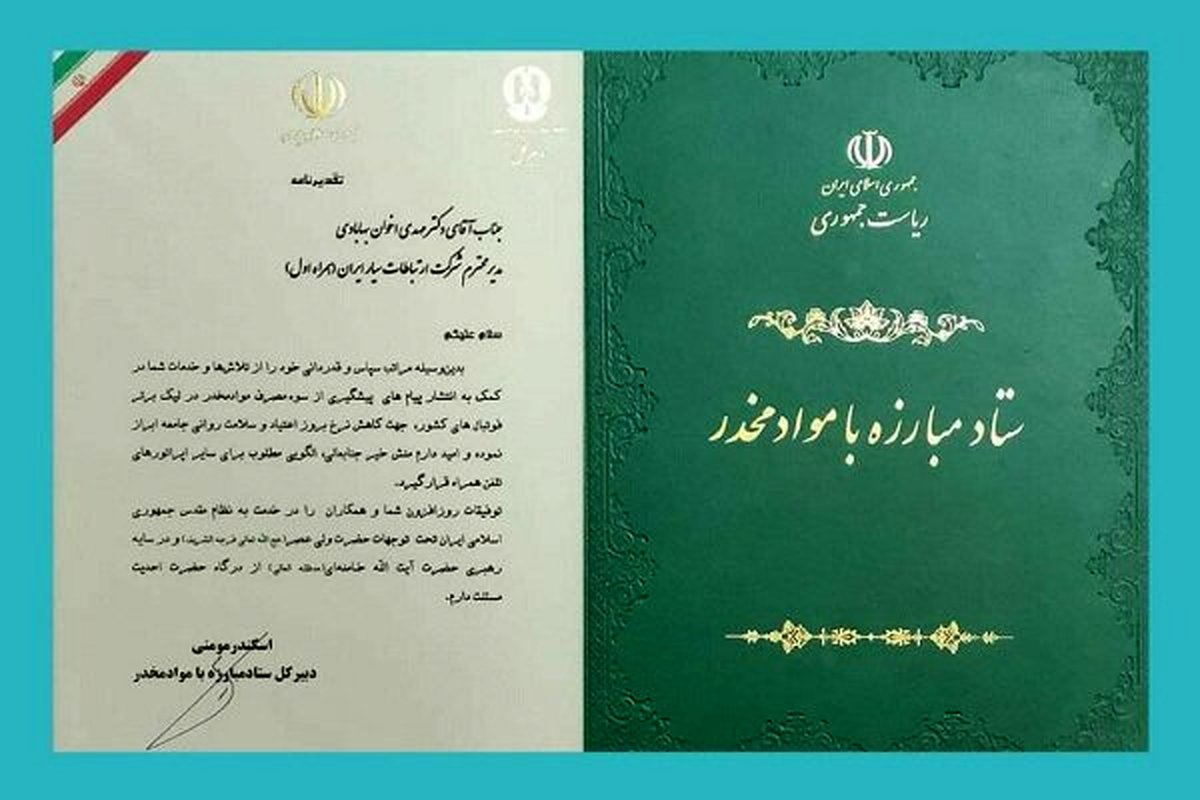 جمهوری اسلامی ایران
ریاست جمهوری
ستاد مبارزه با مواد مخدر
تقدیرنامه
جناب آقای دکتر مهدی اخوان بهابادی
مدیر محترم شرکت ارتباطات سیار ایران (همراه اول)
سلام علیکم
بدین‌وسیله مراتب سپاس و قدردانی خود را از تلاش‌ها و خدمات شما در
کمک به انتشار پیام های پیشگیری از سوء مصرف موادمخدر در لیگ برتر
فوتبال های کشور، جهت کاهش نرخ بروز اعتیاد و سلامت روانی جامعه ابراز
نموده و امید دارم منش خیر جنابعالی، الگویی مطلوب برای سایر اپراتورهای
تلفن همراه قرار گیرد.
توفیقات روزافزون شما و همکاران را در خدمت به نظام مقدس جمهوری
اسلامی ایران تحت توجهات حضرت ولی عصر(عج الله تعالی فرجه الشریف) و در سایه
رهبری حضرت آیت الله خامنه‌ای(مدظله العالی) از درگاه حضرت احدیت
مسئلت دارم.
اسکندر مومنی
دبیر کل ستاد مبارزه با موادمخدر